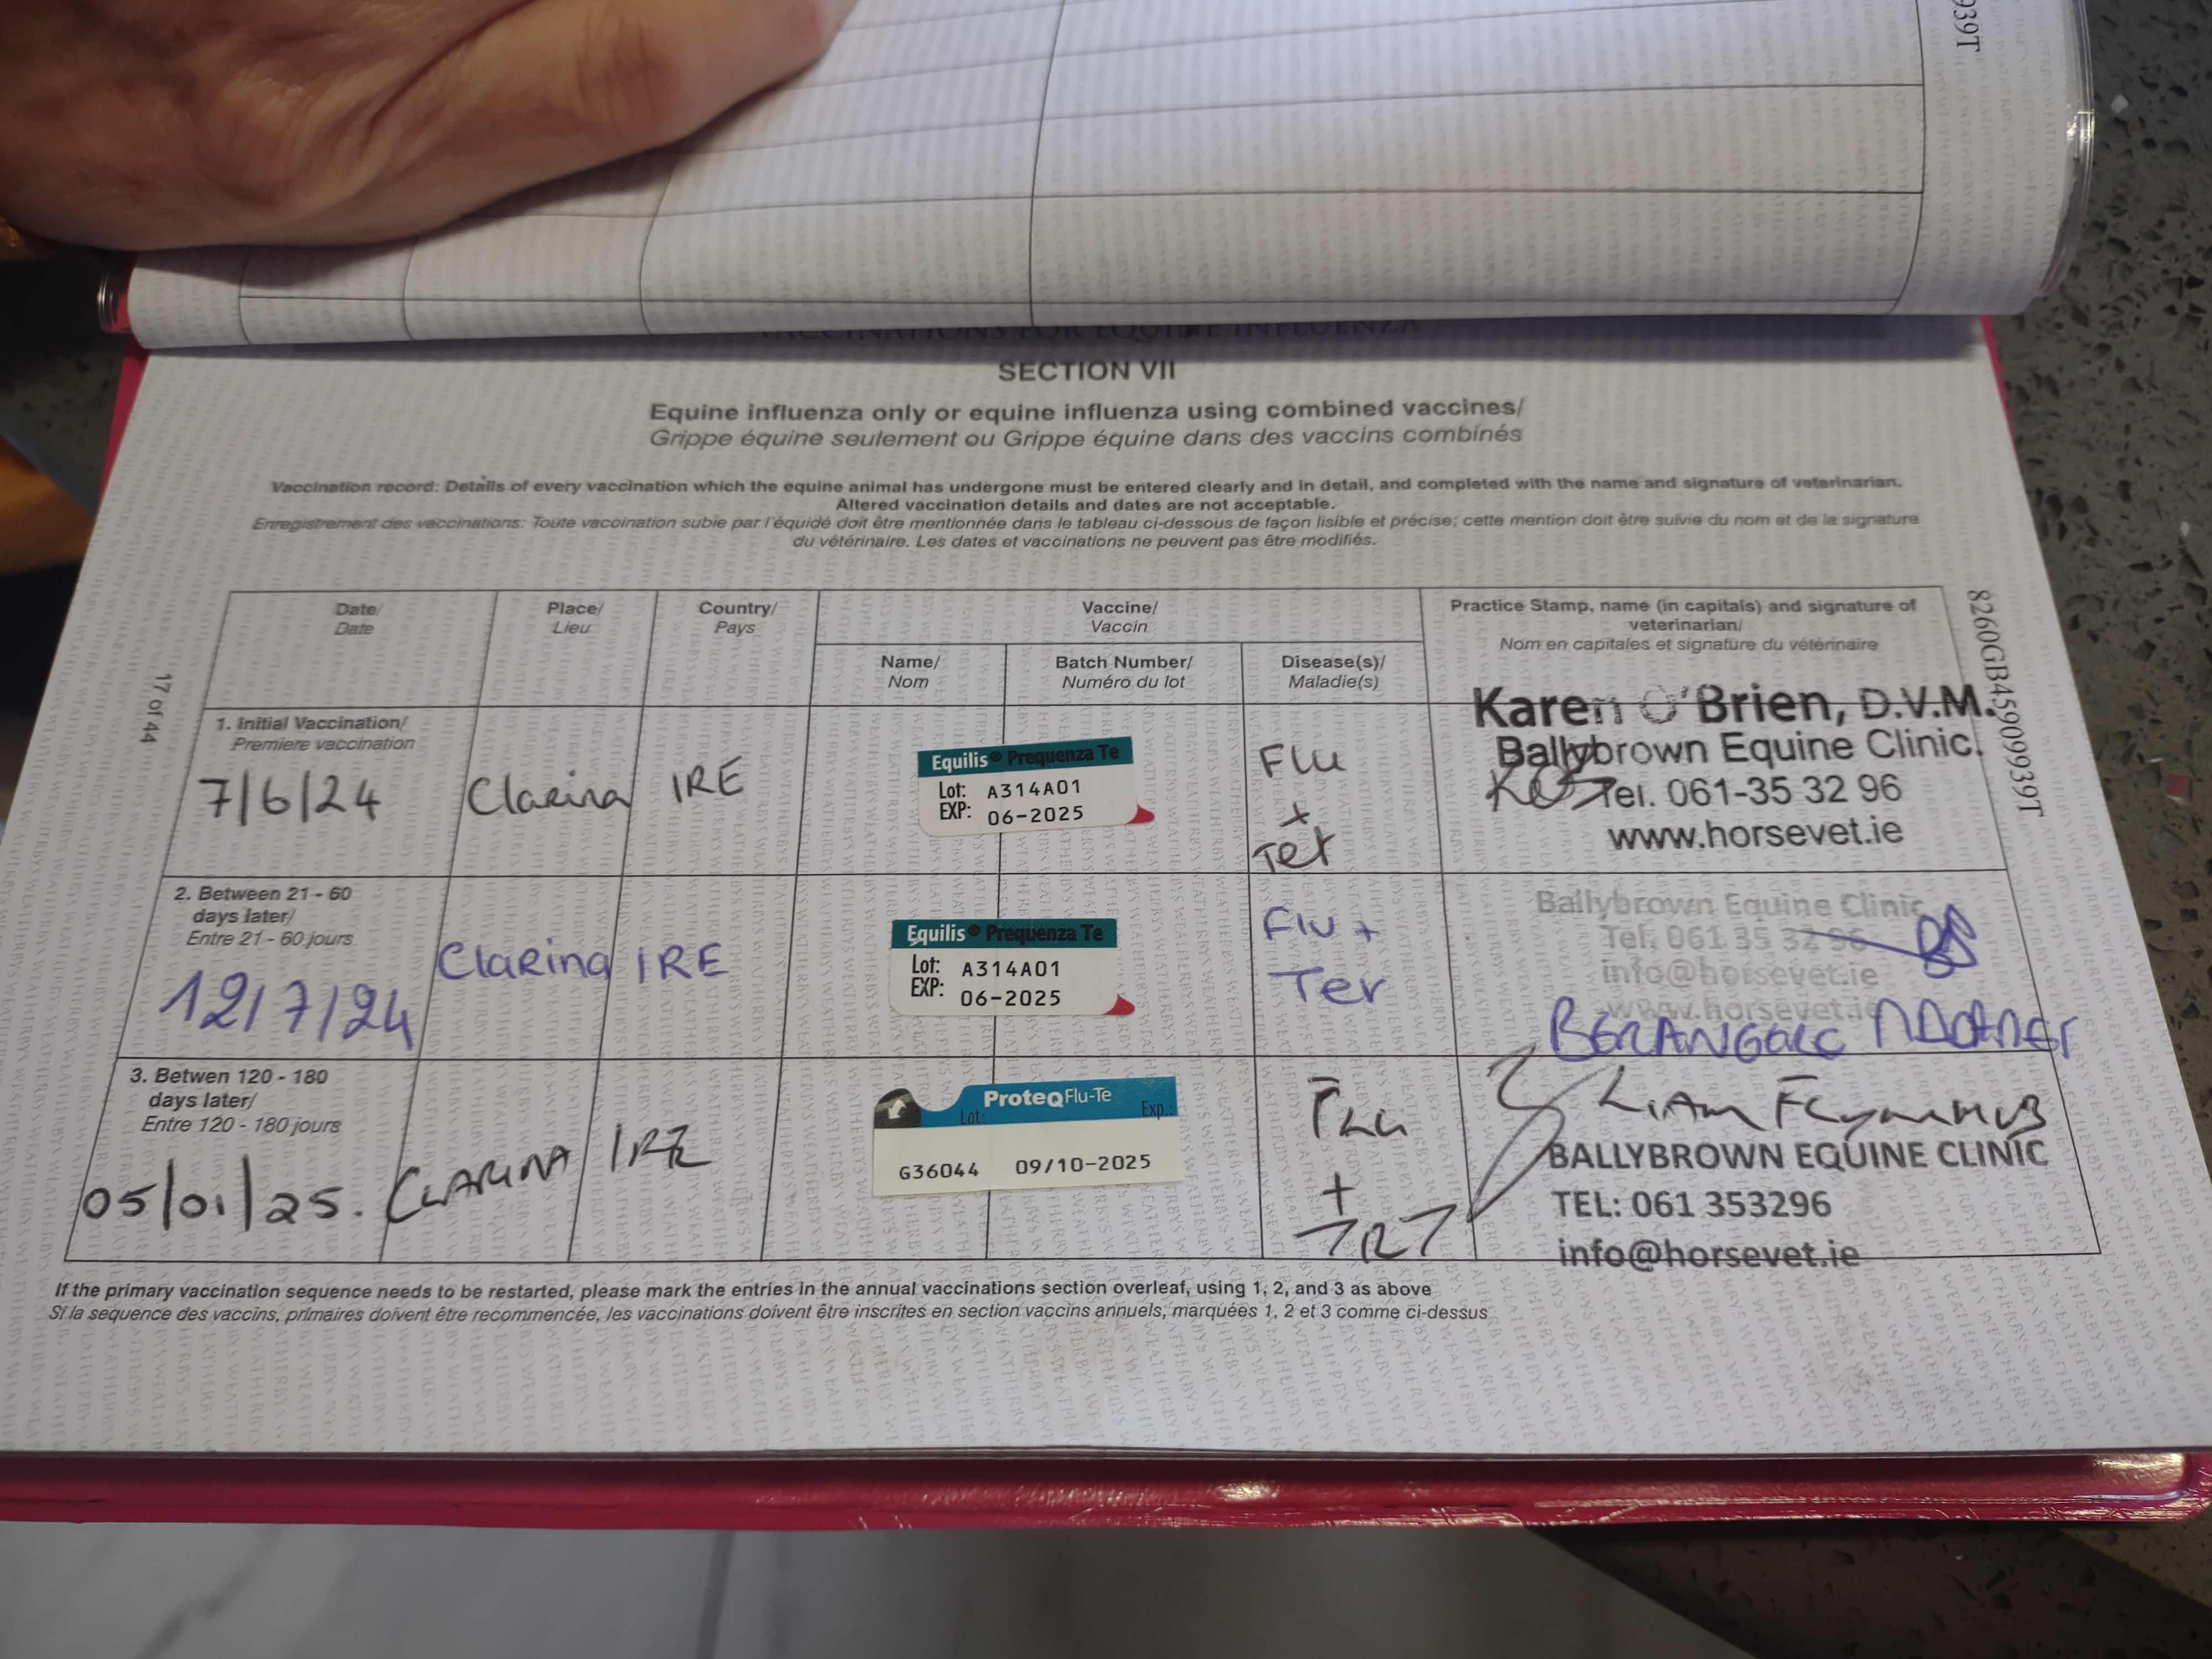 939T
VACCINATIONS FOR EQUINE INFLUENZA
SECTION VII
Equine influenza only or equine influenza using combined vaccines/
Grippe équine seulement ou Grippe équine dans des vaccins combinés
Vaccination record: Details of every vaccination which the equine animal has undergone must be entered clearly and in detail, and completed with the name and signature of veterinarian.
Altered vaccination details and dates are not acceptable.
Enregistrement des vaccinations: Toute vaccination subie par l'équidé doit être mentionnée dans le tableau ci-dessous de façon lisible et précise; cette mention doit être suivie du nom et de la signature
du vétérinaire. Les dates et vaccinations ne peuvent pas être modifiés.
17 of 44
8260GB45909939T
Date/
Date
Place/
Lieu
Country/
Pays
Vaccine/
Vaccin
Name/
Nom
Batch Number/
Numéro du lot
Disease(s)/
Maladie(s)
Practice Stamp, name (in capitals) and signature of
veterinarian/
Nom en capitales et signature du vétérinaire
1. Initial Vaccination/
Premiere vaccination
7/6/24
Clarina
IRE
Equilis® Prequenza Te
Lot: A314A01
EXP: 06-2025
Flu
+
Tet
Karen O'Brien, D.V.M.
Ballybrown Equine Clinic.
Tel. 061-35 32 96
www.horsevet.ie
2. Between 21 - 60
days later/
Entre 21 - 60 jours
12/7/24
Clarina
IRE
Equilis® Prequenza Te
Lot: A314A01
EXP: 06-2025
Flu +
Ter
Ballybrown Equine Clinic
Tel: 061 35 32 96
info@horsevet.ie
www.horsevet.ie
3. Betwen 120 - 180
days later/
Entre 120 - 180 jours
05/01/25.
CLARINA
IRE
ProteqFlu-Te
Lot: Exp.:
G36044 09/10-2025
Flu
+
TET
LIAM FLYNN MVB
BALLYBROWN EQUINE CLINIC
TEL: 061 353296
info@horsevet.ie
If the primary vaccination sequence needs to be restarted, please mark the entries in the annual vaccinations section overleaf, using 1, 2, and 3 as above
Si la sequence des vaccins, primaires doivent être recommencée, les vaccinations doivent être inscrites en section vaccins annuels, marquées 1, 2 et 3 comme ci-dessus